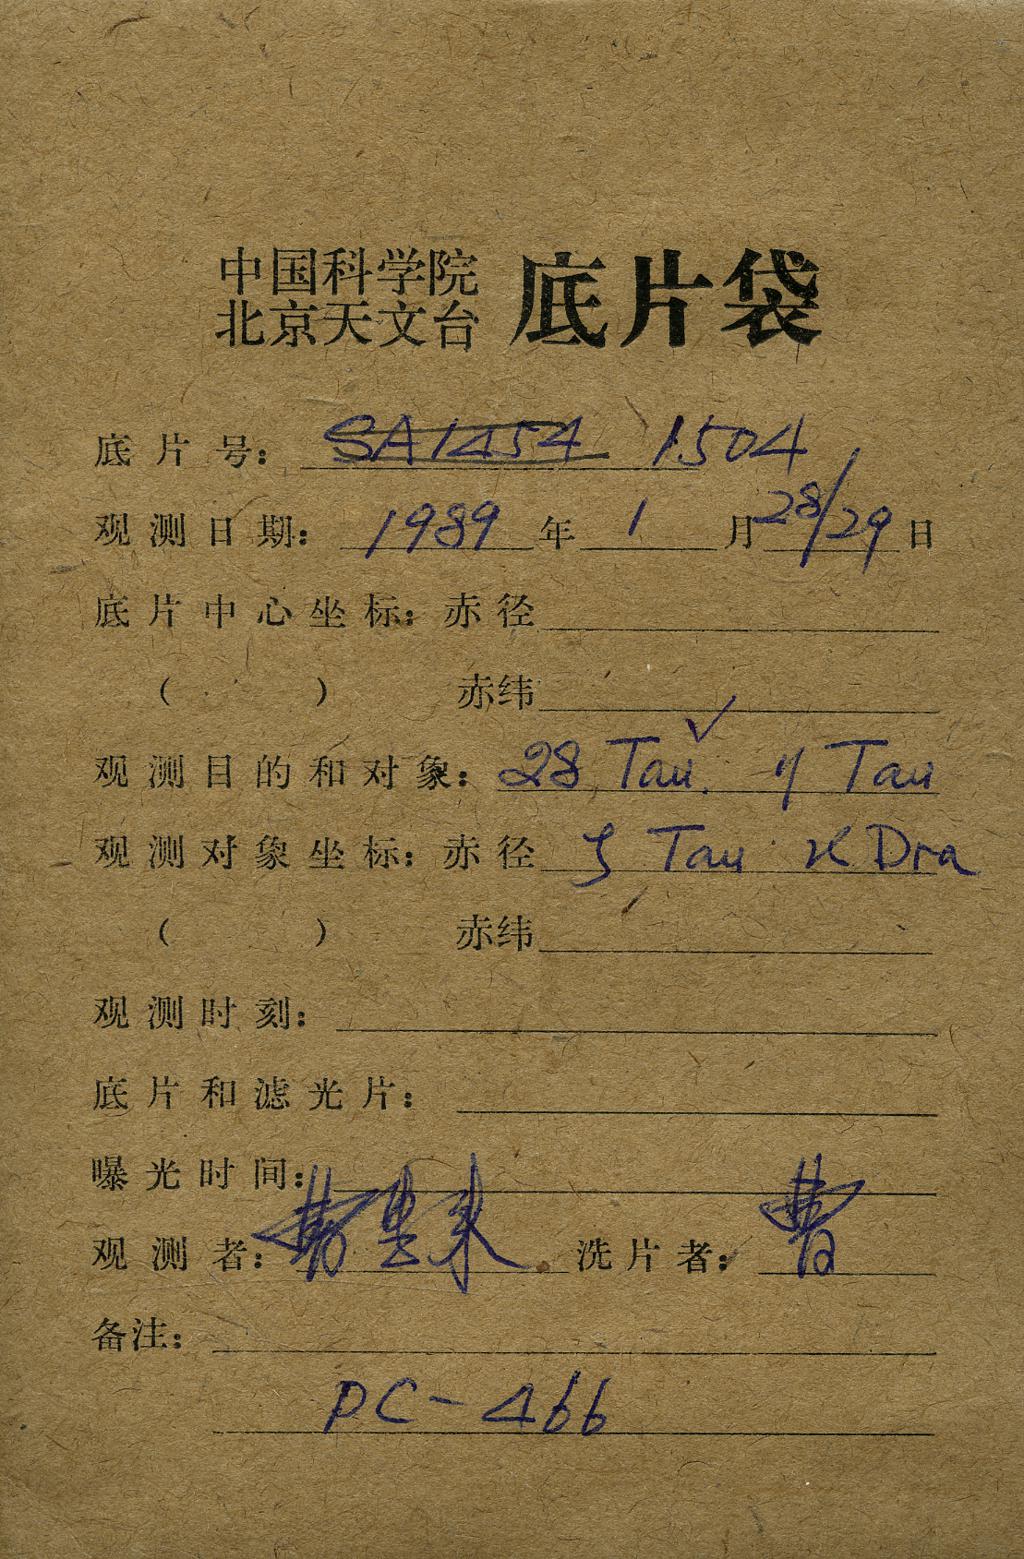 中国科学院
北京天文台 底片袋
底片号: SA1454 1504
观测日期: 1989 年 1 月 28/29 日
底片中心坐标: 赤径
( ) 赤纬
观测目的和对象: 28 Tau. η Tau
观测对象坐标: 赤径 ζ Tau κ Dra
( ) 赤纬
观测时刻:
底片和滤光片:
曝光时间:
观测者: 洗片者: 曹
备注:
PC-466